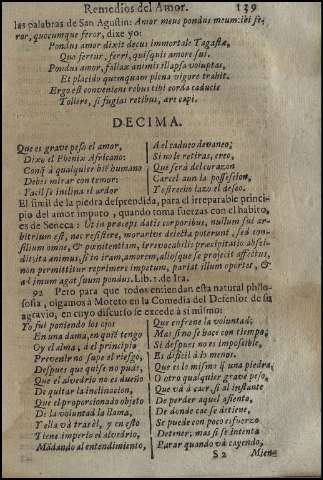 Remedios del Amor. 139
las palabras de San Agustin: Amor meus pondus meum: ibi fe-
ror, quocumque feror, dixe yo:
Pondus amor dixit decus immortale Tagastæ,
Que fertur, ferri, quisquis amore sui.
Pondus amor, fallax animis illapsa voluptas,
Et placido quemquam plena vigore trahit.
Ergo est conveniens rebus tibi corda caducis
Tollere, si fugias retibus, are capi.
DECIMA.
Que es grave peso el amor,
Dixo el Phenix Africano:
Conq̃ à qualquier biẽ humano
Debes mirar con temor:
Facil se inclina el ardor
A el caduco devaneo;
Si no le retiras, creo,
Que serà del corazon
Carcel aun la possession,
Y estrecho lazo el deseo.
El simil de la piedra desprendida, para el irreparable princi-
pio del amor imputo, quando toma fuerzas con el habito,
es de Seneca: Ut in præceps datis corporibus, nullum sui ar-
bitrium est, nec resistere, morarive dejecta poterunt, sed con-
silium omne, & pœnitentiam, irrevocabilis præcipitatio absci-
dit, ita animus, si in iram, amorem, aliosque se projecit affectus,
non permittitur reprimere impetum, pariat illum oportet, &
ad imum agat suum pondus. Lib. 1. de Ira.
92 Pero para que todos entiendan esta natural philo-
sofia, oigamos à Moreto en la Comedia del Defensor de su
agravio, en cuyo discurso se excede à si mismo:
Yo fui poniendo los ojos
En una dama, en quiẽ tengo
Oy el alma; à el principio
Prevenir no supe el riesgo,
Despues que quise no pude,
Que el alvedrio no es dueño
De quitar la inclinacion,
Que el proporcionado objeto
Di de la voluntad la llama,
Y ella và tras èl, y en esto
Tiene imperio el alvedrio,
Mãdando al entendimiento,
Que enfrene la voluntad;
Mas si no se hace con tiempo,
Si despues no es impossible,
Es dificil à lo menos.
Que es lo mismo q̃ una piedra,
O otro qualquier grave peso,
Que và à caer, si al instante
De perder aquel assiento,
De donde cae se detiene,
Se puede con poco esfuerzo
Detener; mas si se intenta
Parar quando và cayendo,
S 2 Mien-